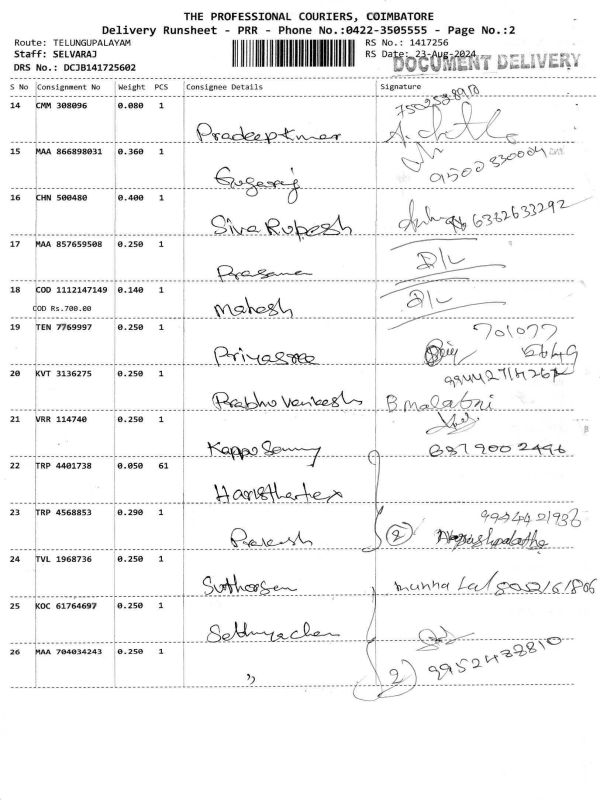 THE PROFESSIONAL COURIERS, COIMBATORE
Delivery Runsheet - PRR - Phone No.:0422-3505555 - Page No.:2
Route: TELUNGUPALAYAM RS No.: 1417256
Staff: SELVARAJ RS Date: 23-Aug-2024
DOCUMENT DELIVERY
DRS No.: DCJB141725602
S No Consignment No Weight PCS Consignee Details Signature
14 CMM 308096 0.080 1
Pradeepkumar
15 MAA 866898031 0.360 1
9500330004
16 CHN 500480 0.400 1
Siva Rupesh 6382633292
17 MAA 857659508 0.250 1
Prasanna D/L
18 COD 1112147149 0.140 1 D/L
COD Rs.700.00 Mahesh
19 TEN 7769997 0.250 1 701077
Priyasree
20 KVT 3136275 0.250 1
Prabhu Venkesh B. Malathi
21 VRR 114740 0.250 1
Kappu Samy 637900 2496
22 TRP 4401738 0.050 61
Haristhartex
23 TRP 4568853 0.290 1
Prakash 2
24 TVL 1968736 0.250 1
Munna Lal
25 KOC 61764697 0.250 1
26 MAA 704034243 0.250 1
" 2 9952488810